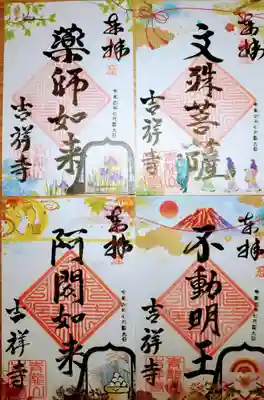 奉拝
薬師如来
吉祥寺
奉拝
文殊菩薩
吉祥寺
奉拝
阿閦如来
吉祥寺
奉拝
不動明王
吉祥寺